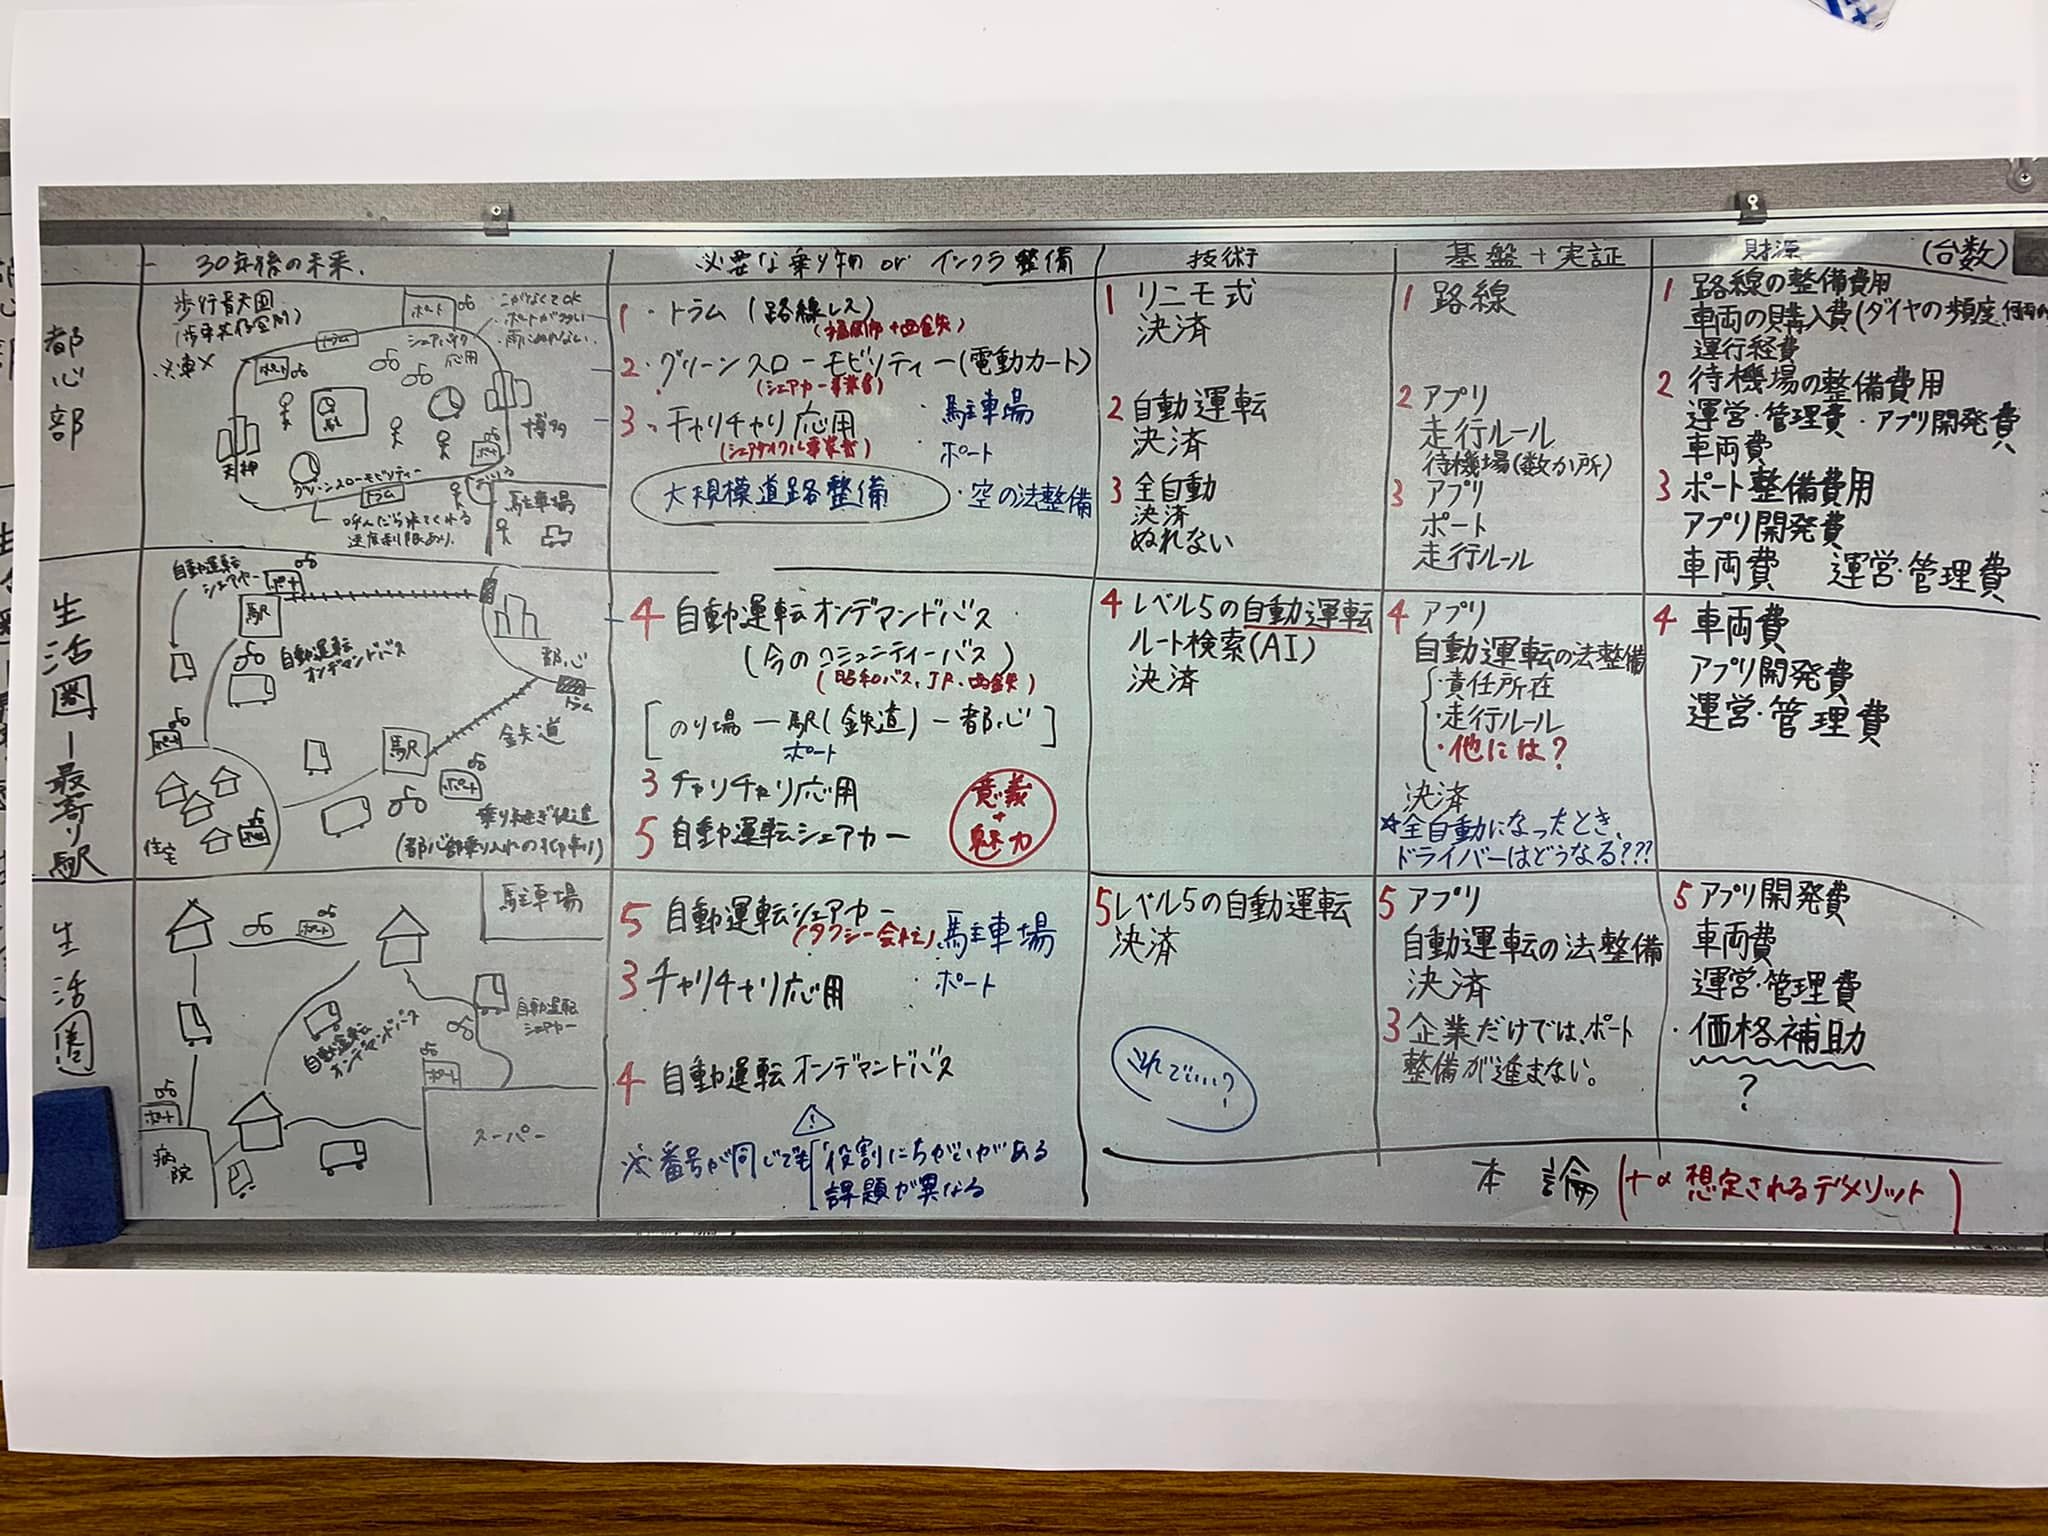 30年後の未来.
必要な乗り物 or インフラ整備
技術
基盤+実証
財源
(台数)
都心部
歩行者天国
(歩車共存空間)
ポート
・こがなくてOK
・ポートが多い
・雨にぬれない.
トラム
シェアバイク
応用
ポート
駅
天神
博多
ポート
グリーンスローモビリティー
トラム
呼んだら来てくれる
速度制限あり.
駐車場
1・トラム(路線レス)
(福岡市+西鉄)
2・グリーンスローモビリティー(電動カート)
(シェアカー事業者)
3・チャリチャリ応用
(シェアサイクル事業者)
・駐車場
・ポート
大規模道路整備
・空の法整備
1 リニモ式
決済
2 自動運転
決済
3 全自動
決済
ぬれない
1 路線
2 アプリ
走行ルール
待機場(数か所)
3 アプリ
ポート
走行ルール
1 路線の整備費用
車両の購入費(ダイヤの頻度、何両の
運行経費
2 待機場の整備費用
運営・管理費・アプリ開発費
車両費
3 ポート整備費用
アプリ開発費
車両費 運営・管理費
生活圏ー最寄り駅
自動運転
シェアカー
ポート
駅
自動運転
オンデマンドバス
都心
トラム
鉄道
駅
ポート
ポート
住宅
ポート
乗り継ぎ促進
(都心部乗り入れの抑制)
4 自動運転オンデマンドバス
(今のコミュニティーバス)
(昭和バス、JR、西鉄)
[のり場ー駅(鉄道)ー都心]
ポート
3 チャリチャリ応用
5 自動運転シェアカー
意義
+
魅力
4 レベル5の自動運転
ルート検索(AI)
決済
4 アプリ
自動運転の法整備
・責任所在
・走行ルール
・他には?
決済
☆全自動になったとき、
ドライバーはどうなる???
4 車両費
アプリ開発費
運営・管理費
生活圏
駐車場
ポート
自動運転
オンデマンドバス
自動運転
シェアカー
ポート
ポート
病院
スーパー
5 自動運転シェアカー
(タクシー会社)
・駐車場
3 チャリチャリ応用
・ポート
4 自動運転オンデマンドバス
!
※番号が同じでも
役割にちがいがある
課題が異なる
5 レベル5の自動運転
決済
これでいい?
5 アプリ
自動運転の法整備
決済
3 企業だけでは、ポート
整備が進まない。
5 アプリ開発費
車両費
運営・管理費
・価格補助
?
本論(+α 想定されるデメリット)